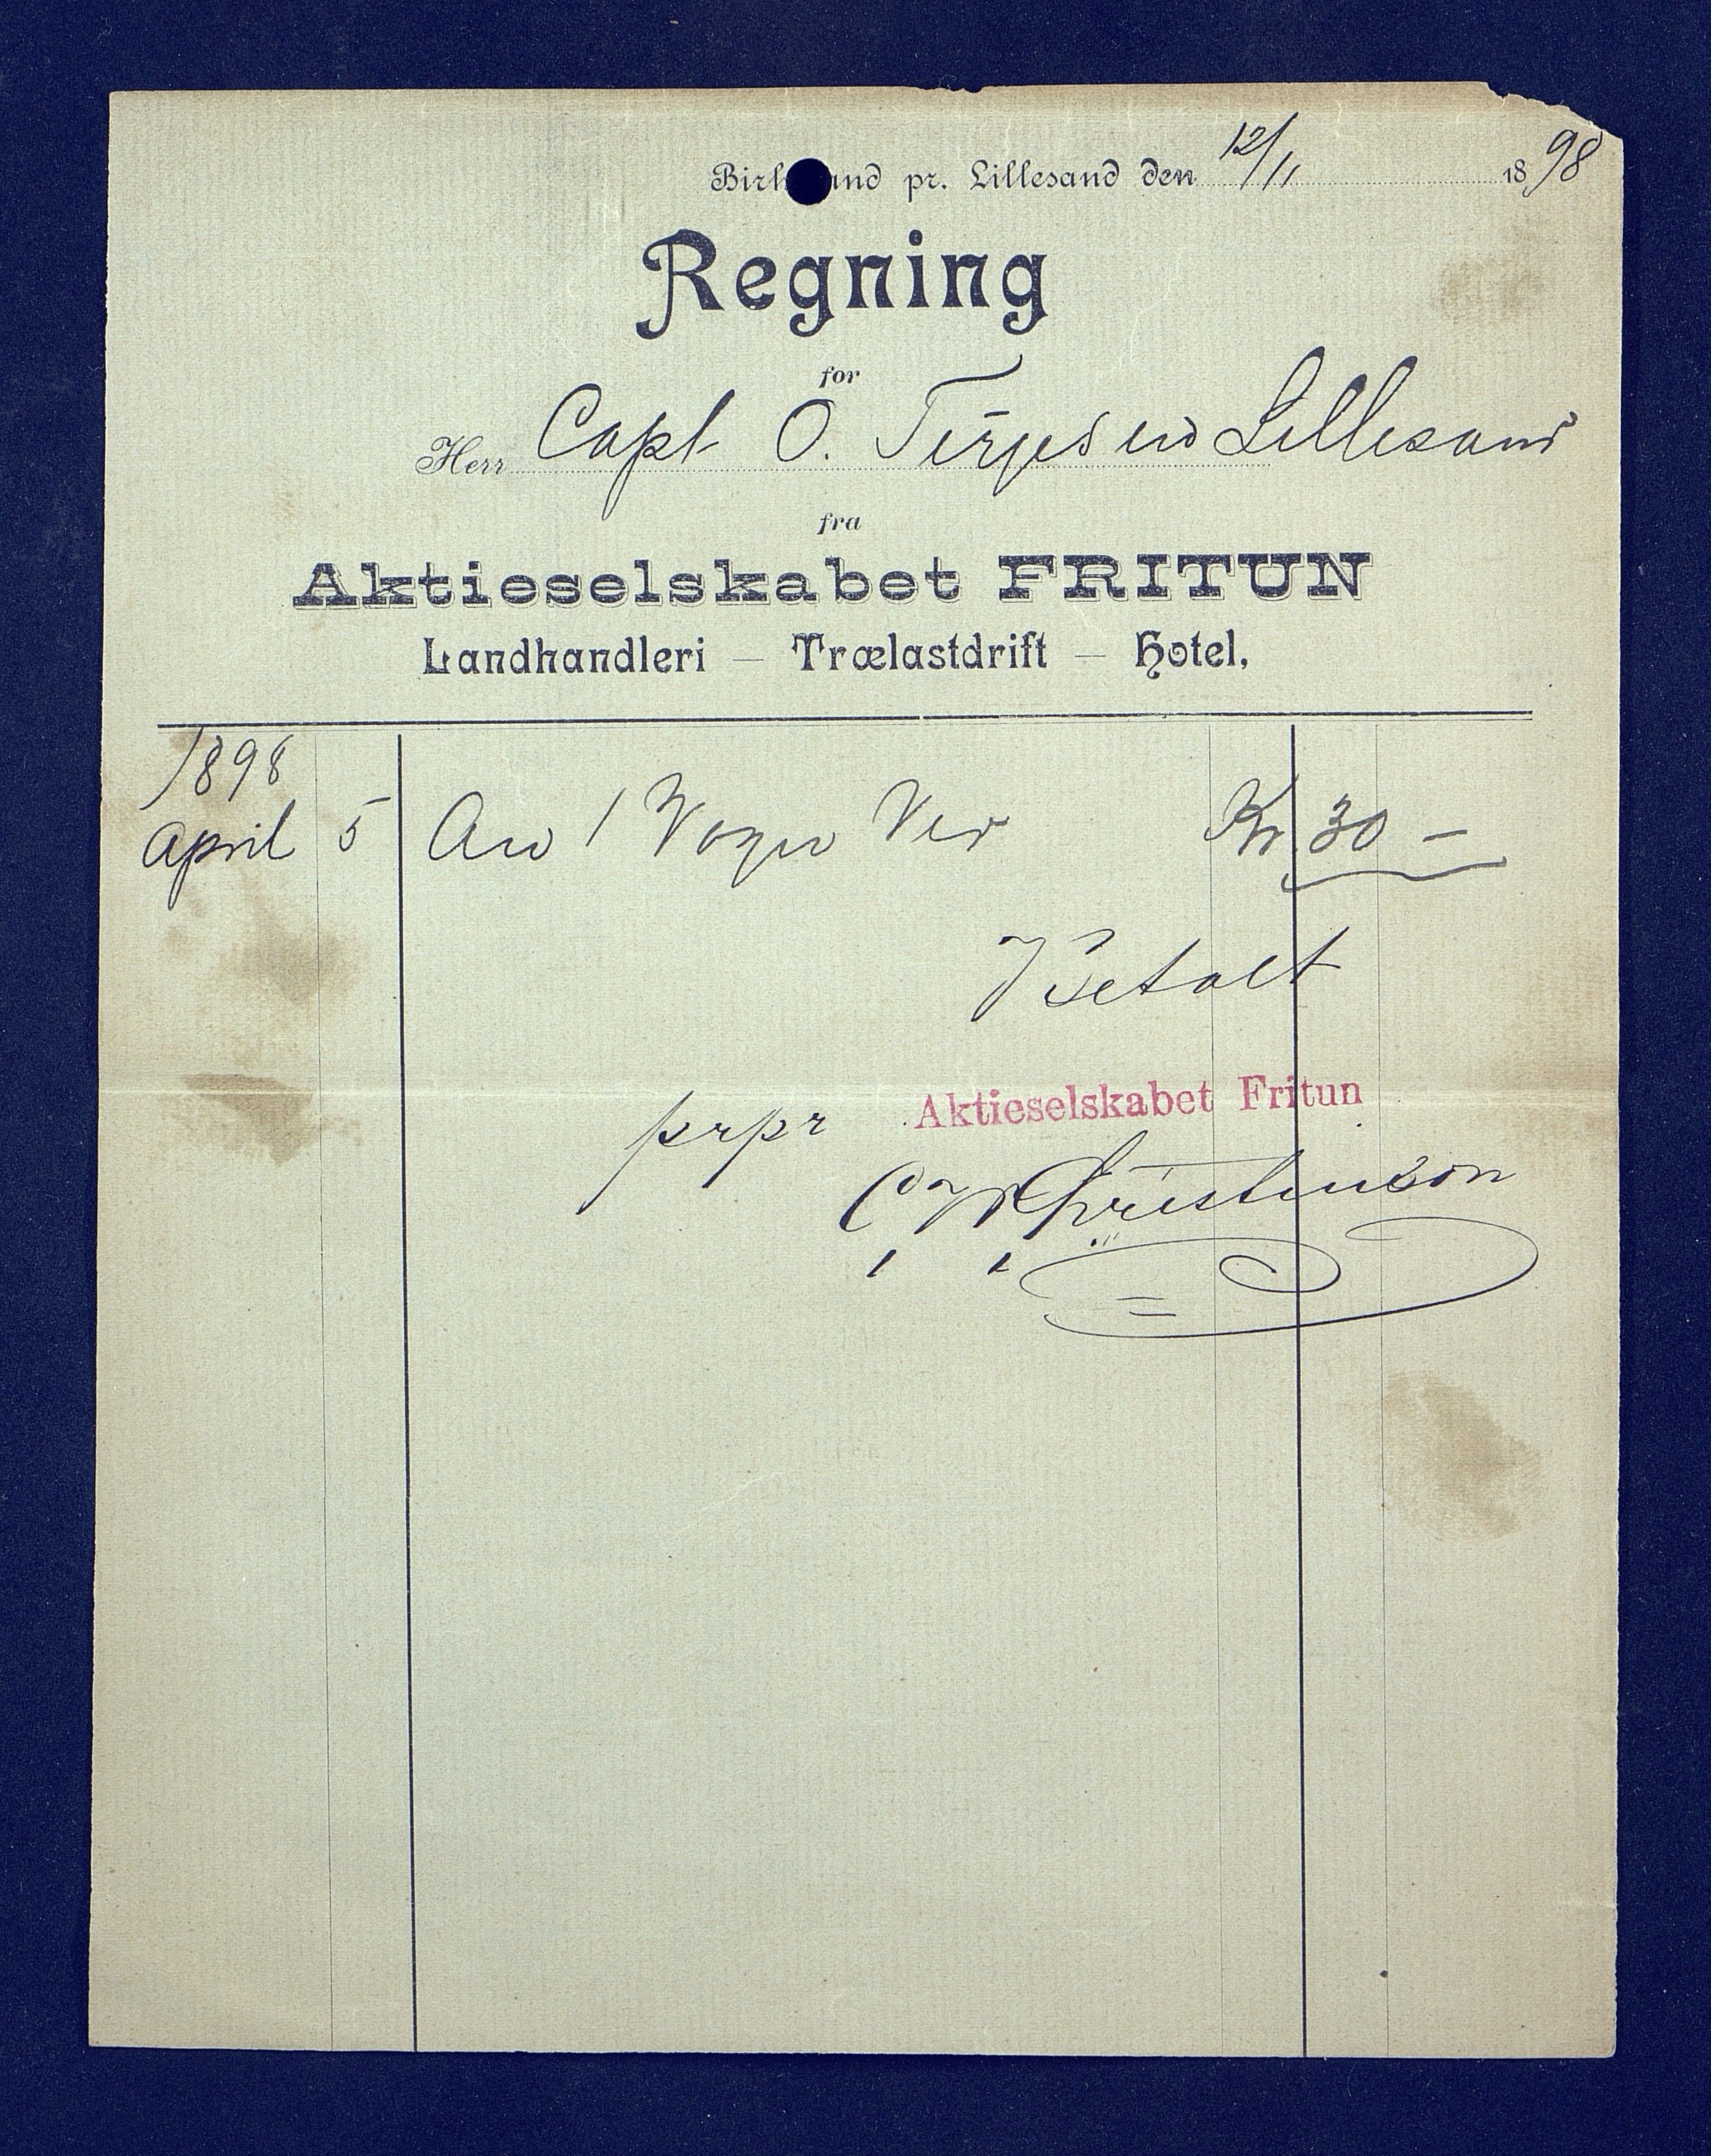 pr. Lillesand den 12/11 1898
Regning
for
Herr Capt O. Terjesen Lillesand
fra
Aktieselskabet FRITUN
Landhandleri – Trælastdrift – Hotel,
1898
April 5 An 1 Vogn Ved Kr 30 –
Betalt
prpr Aktieselskabet Fritun
Christenson